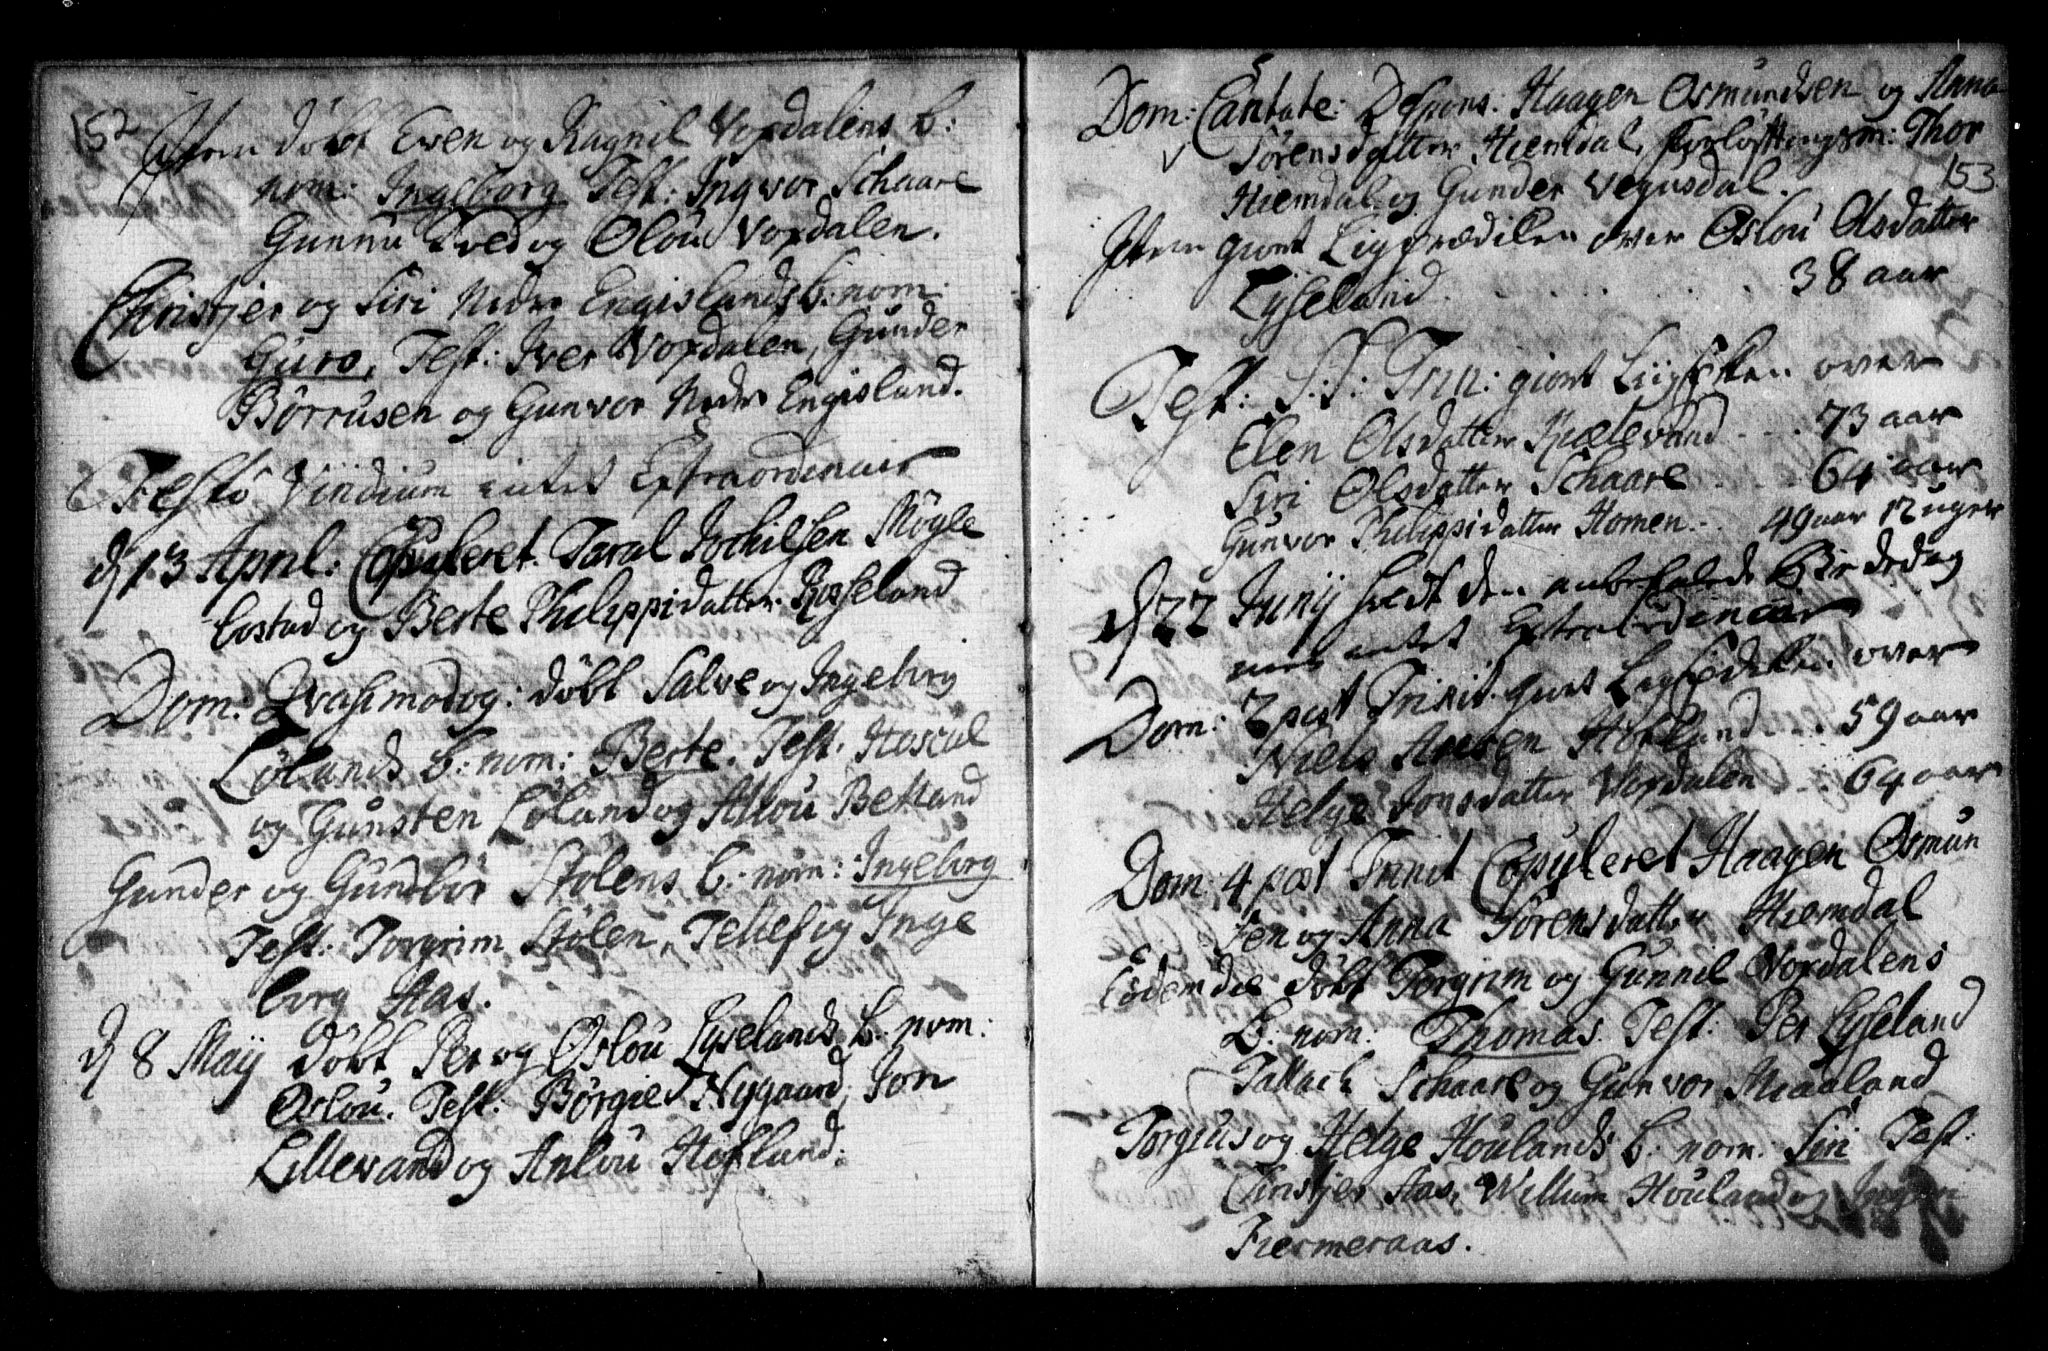 152
Item döbt Even og Ragnil Vordalens b:
nom: Ingeborg Test: Ingvor Schaare
Gunnu Tved og Olou Vordalen.
Christjer og Siri Nedre Engislands b: nom:
Guro, Test: Iver Vordalen, Gunder
Börrusen og Gunvor Nedre Engisland.
Festo Viridium intet Extraordinair
d 13 April: Copuleret Taral Jochilsen Mögle
bostad og Berte Philippidatter Rosseland
Dom. Qvasimodog: döbt Salve og Ingeborg
Lölands b: nom: Berte. Test. Hoscul
og Gunsten Löland og Aslou Betland
Gunder og Gundbör Stölens b: nom: Ingeborg
Test: Torgrim Stölen, Tellef og Inge
borg Aas.
d 8 Maij döbt Per og Oslou Lyselands b: nom:
Oslou. Test: Börgie Nygaard, Jon
Lillevand og Anlou Hofland.
153
Dom: Cantate: Despons: Haagen Osmundsen og Anna
Sörensdatter Hiemdal, Forlöftningsm: Thor
Hiemdal og Gunder Vegusdal.
Item giort Ligprædiken over Oslou Olsdatter
Lyseland . . . . 38 aar
Fest: S. S. Trin: giort Liigpken over
Elen Olsdatter Kiætevand . . . 73 aar
Siri Olsdatter Schaare . . . 64 aar
Gunvor Philippidatter Homen . . 49 aar 12 uger
d 22 Junij holdt den anbefalede Bededag
men intet Extraordinair
Dom: 2 post Trinit. giort Ligpædiken over
Niels Aresen Hofland . . . 59 aar
Helge Jonsdatter Vordalen . . . 64 aar
Dom 4 post Trinit Copuleret Haagen Osmun
sen og Anna Sörensdatter Hiemdal
Eodem die döbt Torgrim og Gunnil Vordalens
b: nom: Thomas. Test: Per Lyseland
Tallach Schaare og Gunvor Miaaland
Torgius og Helge Houlands b: nom: Siri Test:
Christjer Aas, Willum Houland og
Fiermeraas.